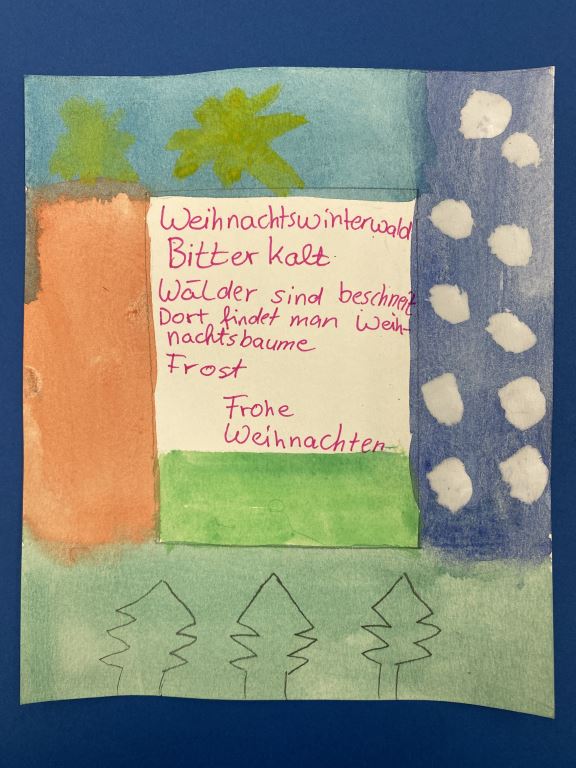 Weihnachtswinterwald
Bitter kalt
Wälder sind beschneit
Dort findet man Weih-
nachtsbaume
Frost
Frohe
Weihnachten